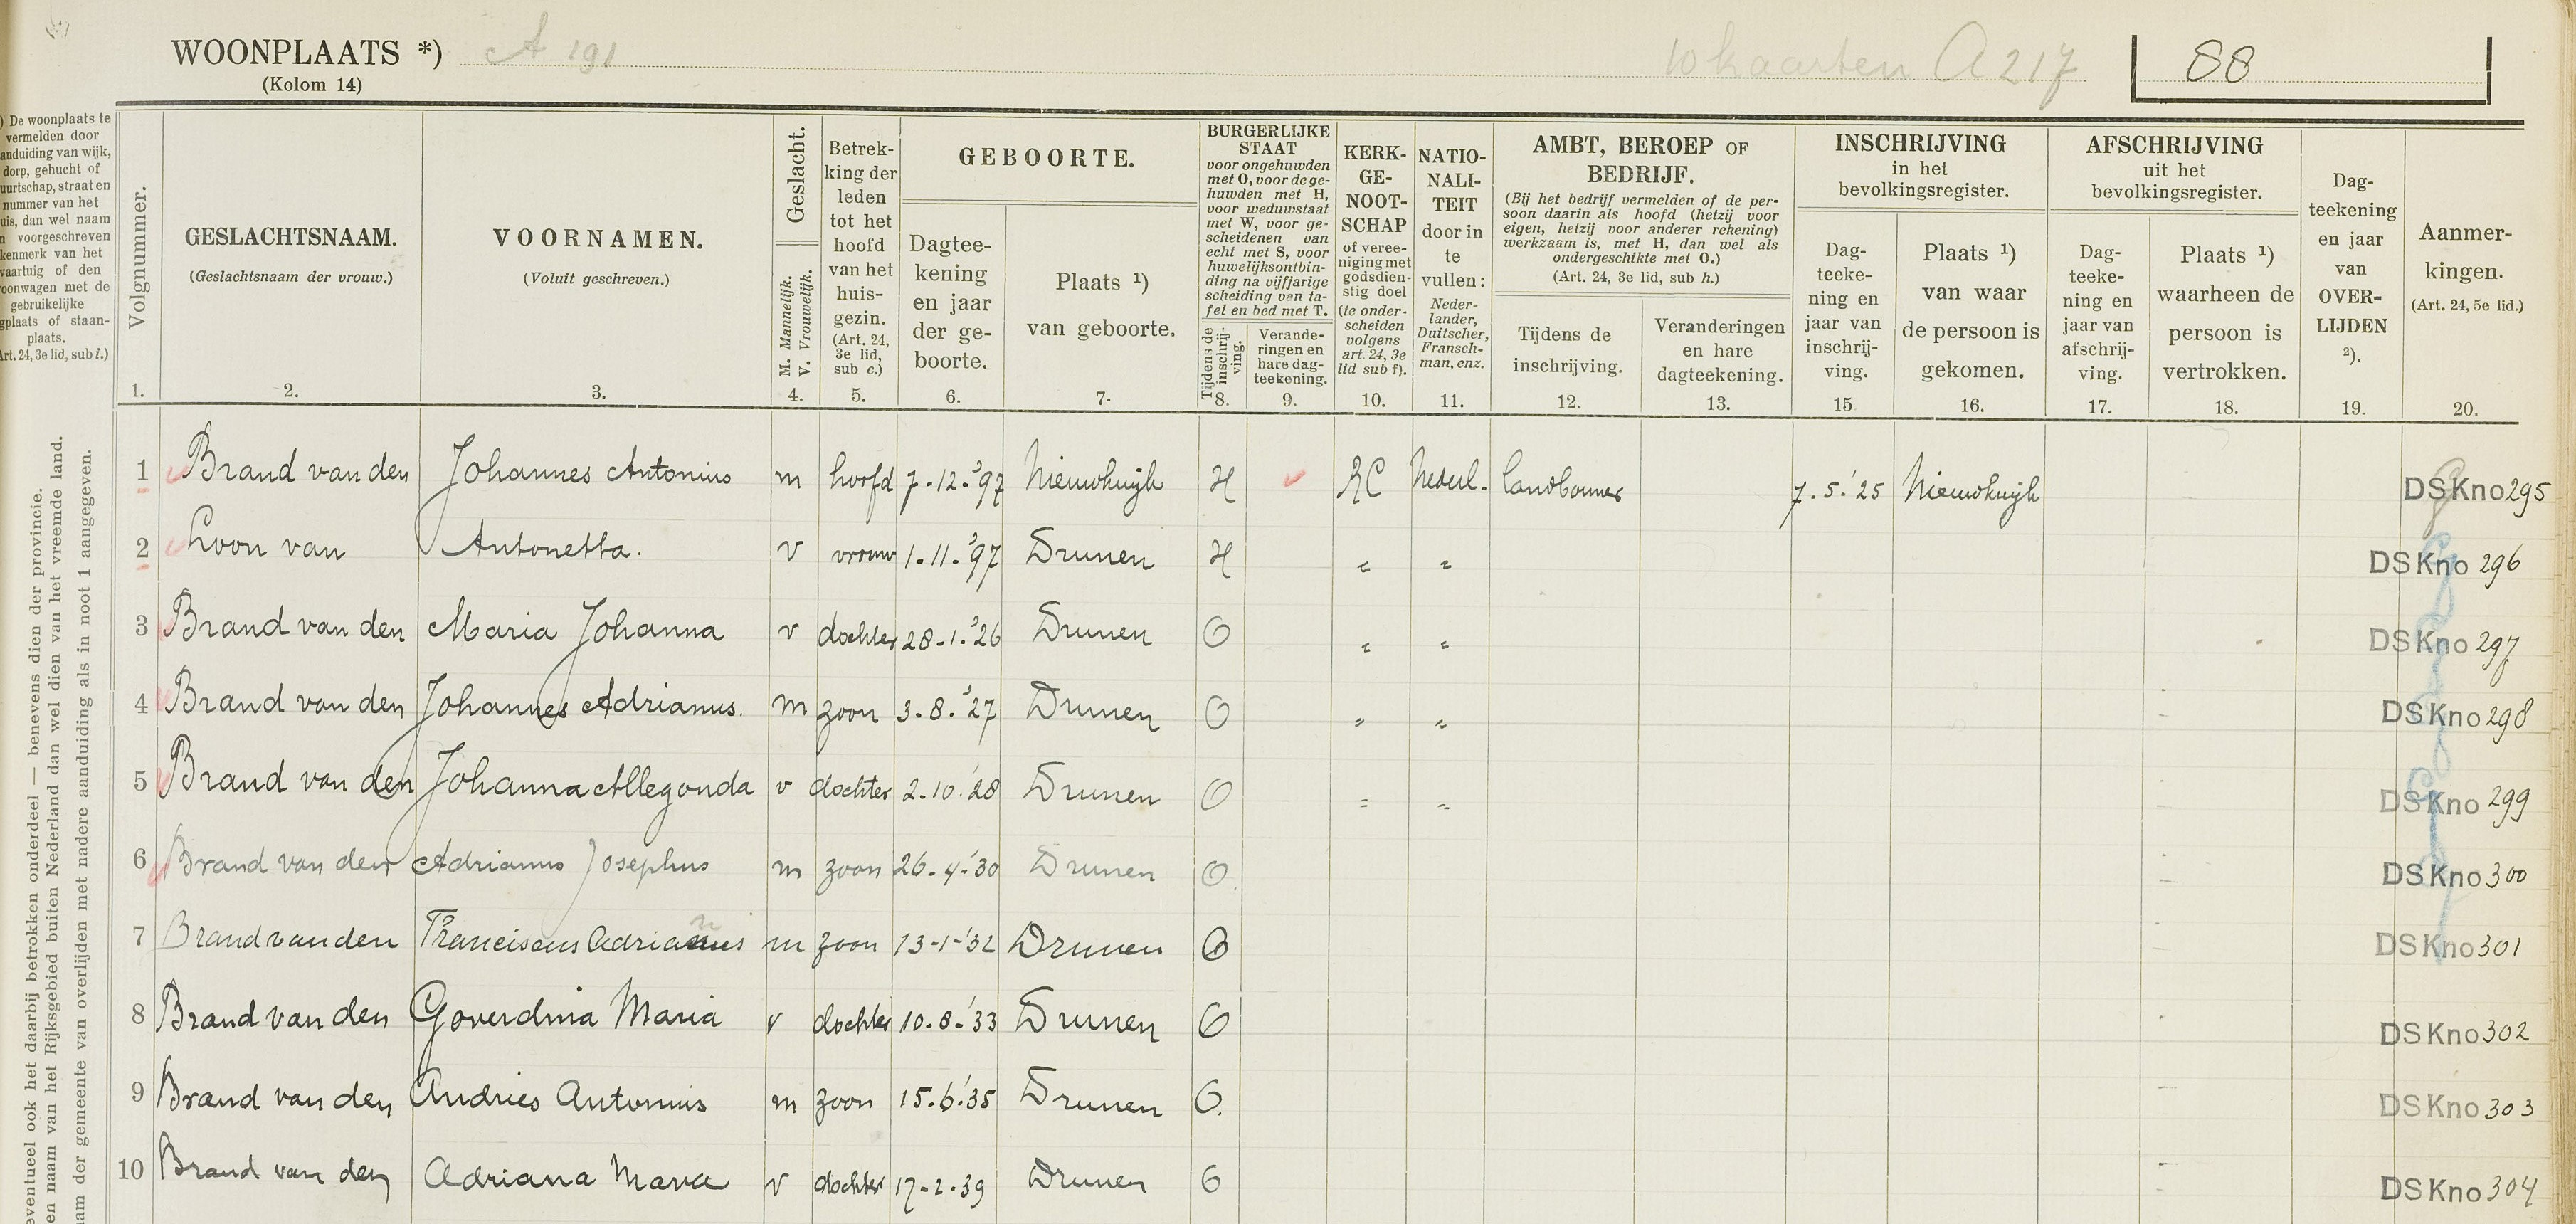 WOONPLAATS *) A 191 10 kaarten A 217 88
(Kolom 14)
) De woonplaats te
vermelden door
anduiding van wijk,
dorp, gehucht of
uurtschap, straat en
nummer van het
uis, dan wel naam
n voorgeschreven
kenmerk van het
vaartuig of den
oonwagen met de
gebruikelijke
gplaats of staan-
plaats.
Art. 24, 3e lid, sub i.)
Volgnummer.
1.
GESLACHTSNAAM.
(Geslachtsnaam der vrouw.)
2.
VOORNAMEN.
(Voluit geschreven.)
3.
Geslacht.
M. Mannelijk.
V. Vrouwelijk.
4.
Betrek-
king der
leden
tot het
hoofd
van het
huis-
gezin.
(Art. 24,
3e lid,
sub c.)
5.
GEBOORTE.
Dagtee-
kening
en jaar
der ge-
boorte.
6.
Plaats ¹)
van geboorte.
7.
BURGERLIJKE
STAAT
voor ongehuwden
met O, voor de ge-
huwden met H,
voor weduwstaat
met W, voor ge-
scheidenen van
echt met S, voor
huwelijksontbin-
ding na vijfjarige
scheiding van ta-
fel en bed met T.
Tijdens de
inschrij-
ving.
8.
Verande-
ringen en
hare dag-
teekening.
9.
KERK-
GE-
NOOT-
SCHAP
of veree-
niging met
godsdien-
stig doel
(te onder-
scheiden
volgens
art. 24, 3e
lid sub f).
10.
NATIO-
NALI-
TEIT
door in
te
vullen:
Neder-
lander,
Duitscher,
Fransch-
man, enz.
11.
AMBT, BEROEP OF
BEDRIJF.
(Bij het bedrijf vermelden of de per-
soon daarin als hoofd (hetzij voor
eigen, hetzij voor anderer rekening)
werkzaam is, met H, dan wel als
ondergeschikte met O.)
(Art. 24, 3e lid, sub h.)
Tijdens de
inschrijving.
12.
Veranderingen
en hare
dagteekening.
13.
INSCHRIJVING
in het
bevolkingsregister.
Dag-
teeke-
ning en
jaar van
inschrij-
ving.
15
Plaats ¹)
van waar
de persoon is
gekomen.
16.
AFSCHRIJVING
uit het
bevolkingsregister.
Dag-
teeke-
ning en
jaar van
afschrij-
ving.
17.
Plaats ¹)
waarheen de
persoon is
vertrokken.
18.
Dag-
teekening
en jaar
van
OVER-
LIJDEN
²).
19.
Aanmer-
kingen.
(Art. 24, 5e lid.)
20.
1 Brand van den Johannes Antonius m hoofd 7-12-'97 Nieuwkuijk H RC Nederl. landbouwer 7.5.'25 Nieuwkuijk DSKno 295
2 Loon van Antonetta. v vrouw 1-11-'97 Drunen H " " DSKno 296
3 Brand van den Maria Johanna v dochter 28-1-'26 Drunen O " " DSKno 297
4 Brand van den Johannes Adrianus. m zoon 3-8-'27 Drunen O " " DSKno 298
5 Brand van den Johanna Allegonda v dochter 2-10-'28 Drunen O " " DSKno 299
6 Brand van den Adrianus Josephus m zoon 26-4-'30 Drunen O. DSKno 300
7 Brand van den Franciscus Adrianus m zoon 13-1-'32 Drunen O DSKno 301
8 Brand van den Goverdina Maria v dochter 10-8-'33 Drunen O DSKno 302
9 Brand van den Andries Antonius m zoon 15-6-'35 Drunen O. DSKno 303
10 Brand van den Adriana Maria v dochter 17-2-39 Drunen O DSKno 304
eventueel ook het daarbij betrokken onderdeel — benevens dien der provincie.
en naam van het Rijksgebied buiten Nederland dan wel dien van het vreemde land.
am der gemeente van overlijden met nadere aanduiding als in noot 1 aangegeven.